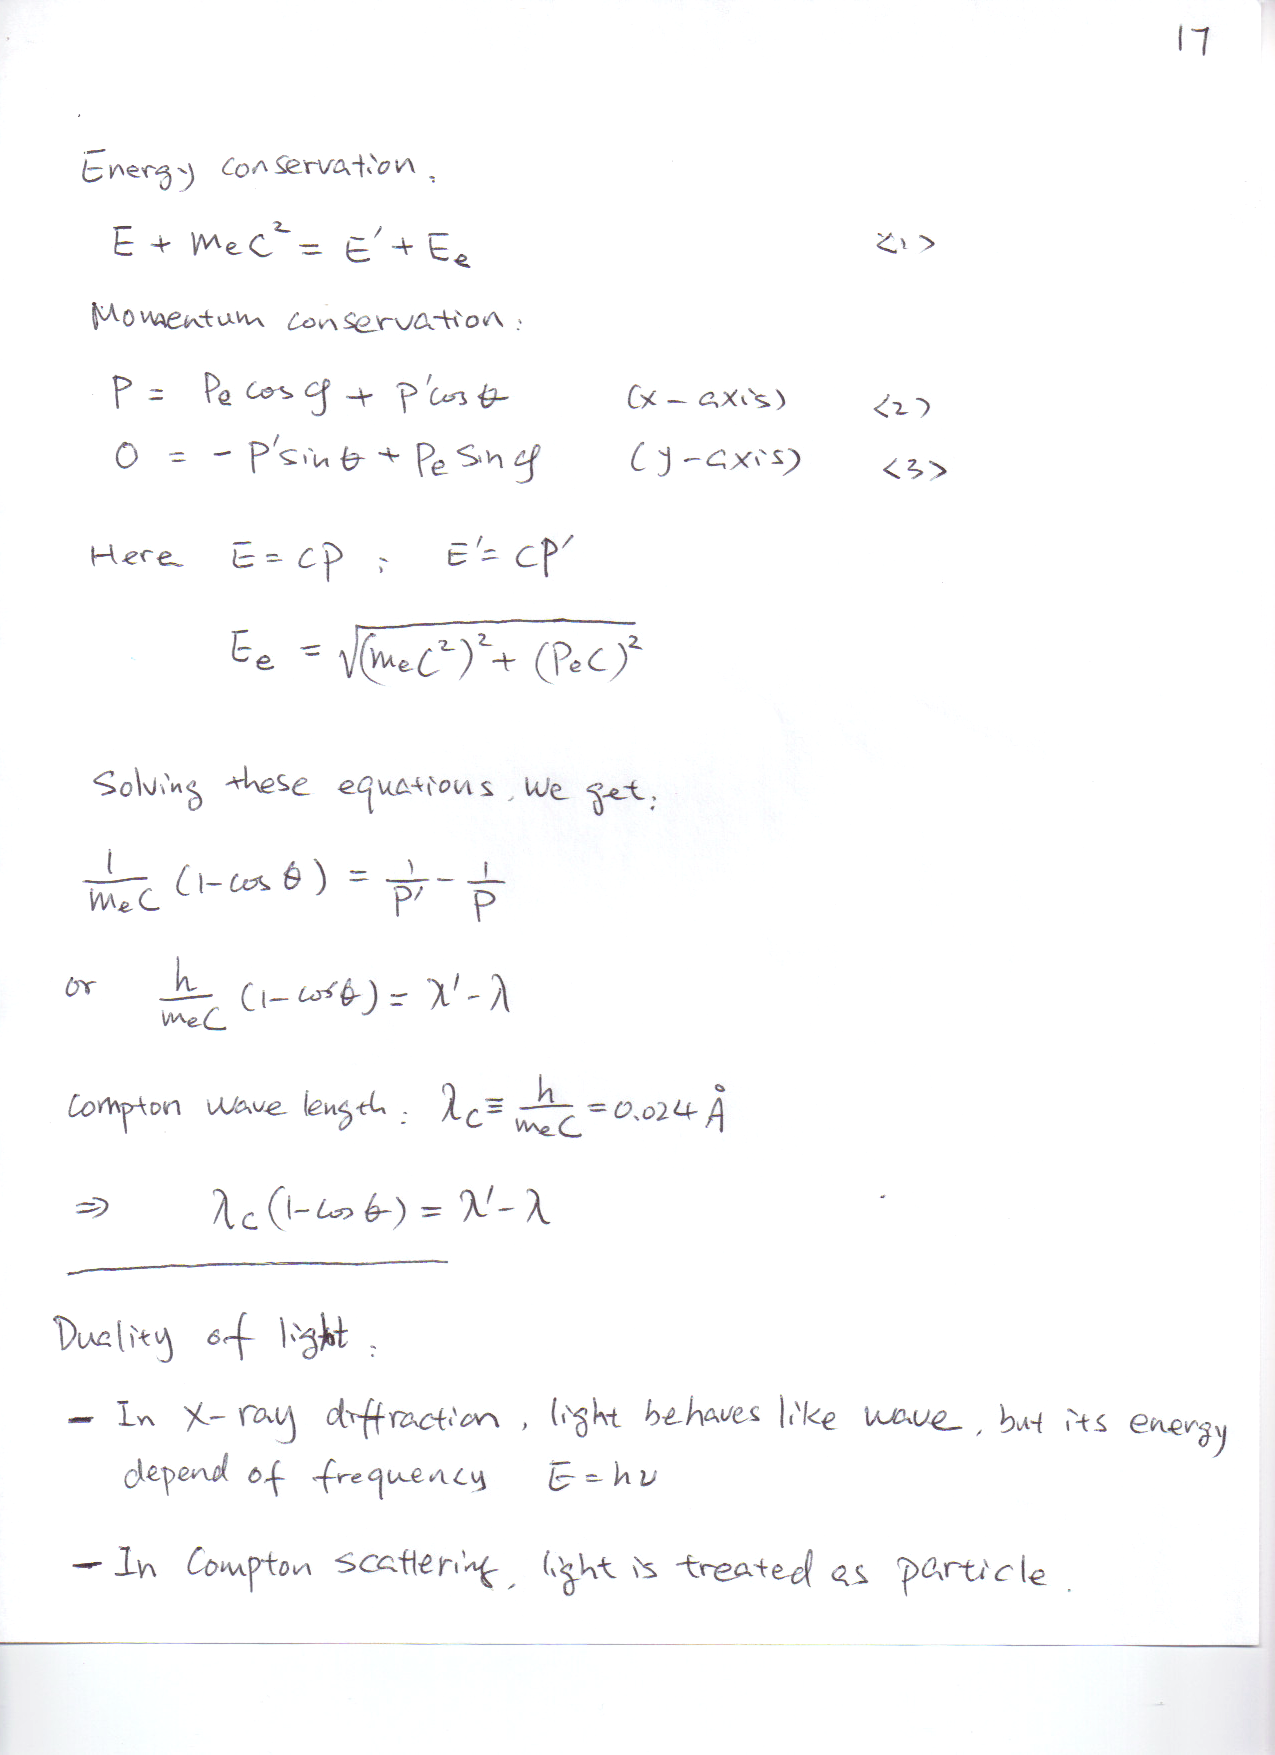 17
Energy conservation.
E + mₑc² = E' + Eₑ <1>
Momentum conservation:
P = Pₑ cos φ + P' cos θ (x-axis) <2>
0 = - P' sin θ + Pₑ sin φ (y-axis) <3>
Here E = cP ; E' = cP'
Eₑ = √((mₑc²)² + (Pₑc)²)
Solving these equations, we get:
1/(mₑc) (1-cos θ) = 1/P' - 1/P
or h/(mₑc) (1-cos θ) = λ' - λ
Compton wave length: λc ≡ h/(mₑc) = 0.024 Å
⇒ λc (1-cos θ) = λ' - λ
Duality of light:
- In X-ray diffraction, light behaves like wave, but its energy
depend of frequency E = hν
- In Compton scattering, light is treated as particle.